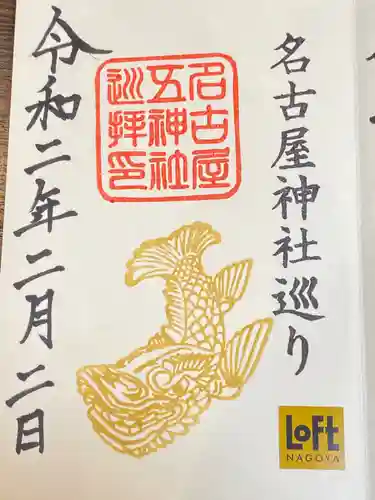 名古屋神社巡り
名古屋
五神社
巡拝印
令和二年二月二日
LOFT
NAGOYA